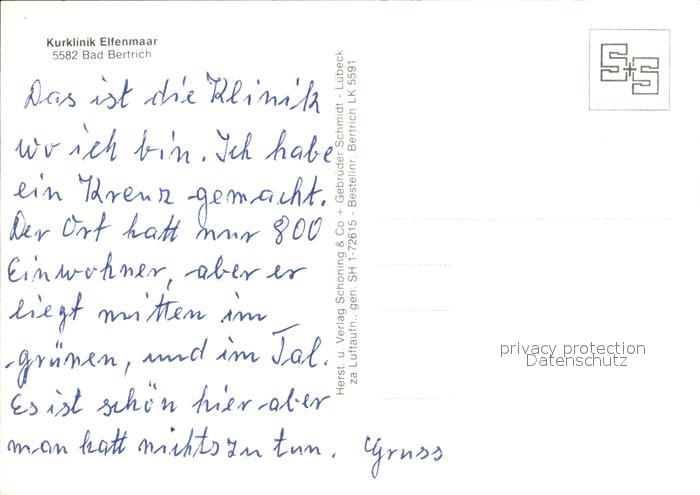 Kurklinik Elfenmaar
5582 Bad Bertrich
Das ist die Klinik
wo ich bin. Ich habe
ein Kreuz gemacht.
Der Ort hatt nur 800
Einwohner, aber er
liegt mitten im
grünen, und im Tal.
Es ist schön hier aber
man hatt nichts zu tun. Gruss
Herst. u. Verlag Schöning & Co + Gebrüder Schmidt - Lübeck
za Luftaufn., gen. SH 1-72615 - Bestellnr. Bertrich LK 5591
S+S
privacy protection
Datenschutz